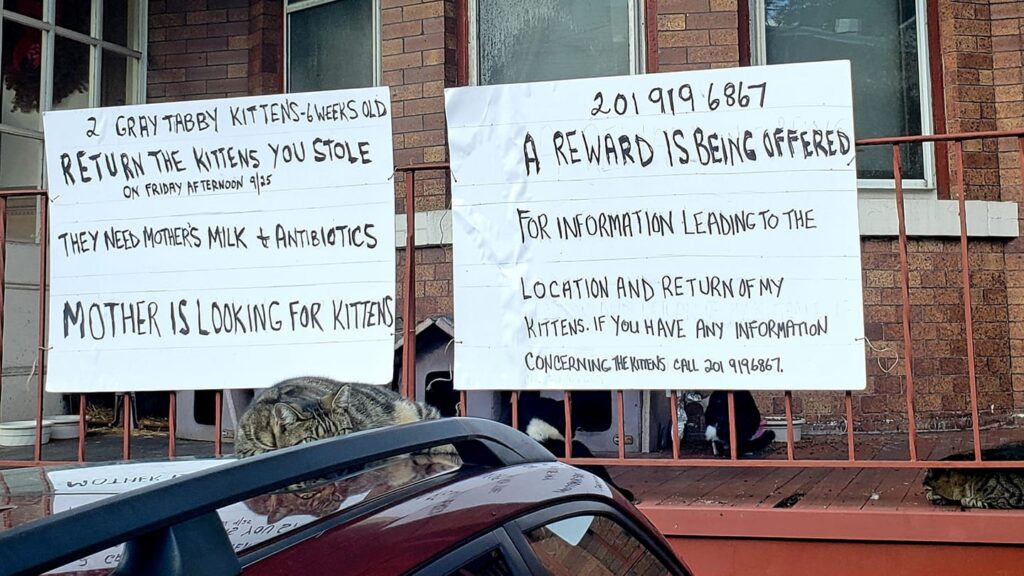 2 GRAY TABBY KITTENS-6 WEEKS OLD
RETURN THE KITTENS YOU STOLE
ON FRIDAY AFTERNOON 9/25
THEY NEED MOTHER'S MILK + ANTIBIOTICS
MOTHER IS LOOKING FOR KITTENS
201 919 6867
A REWARD IS BEING OFFERED
FOR INFORMATION LEADING TO THE
LOCATION AND RETURN OF MY
KITTENS. IF YOU HAVE ANY INFORMATION
CONCERNING THE KITTENS CALL 201 919 6867.